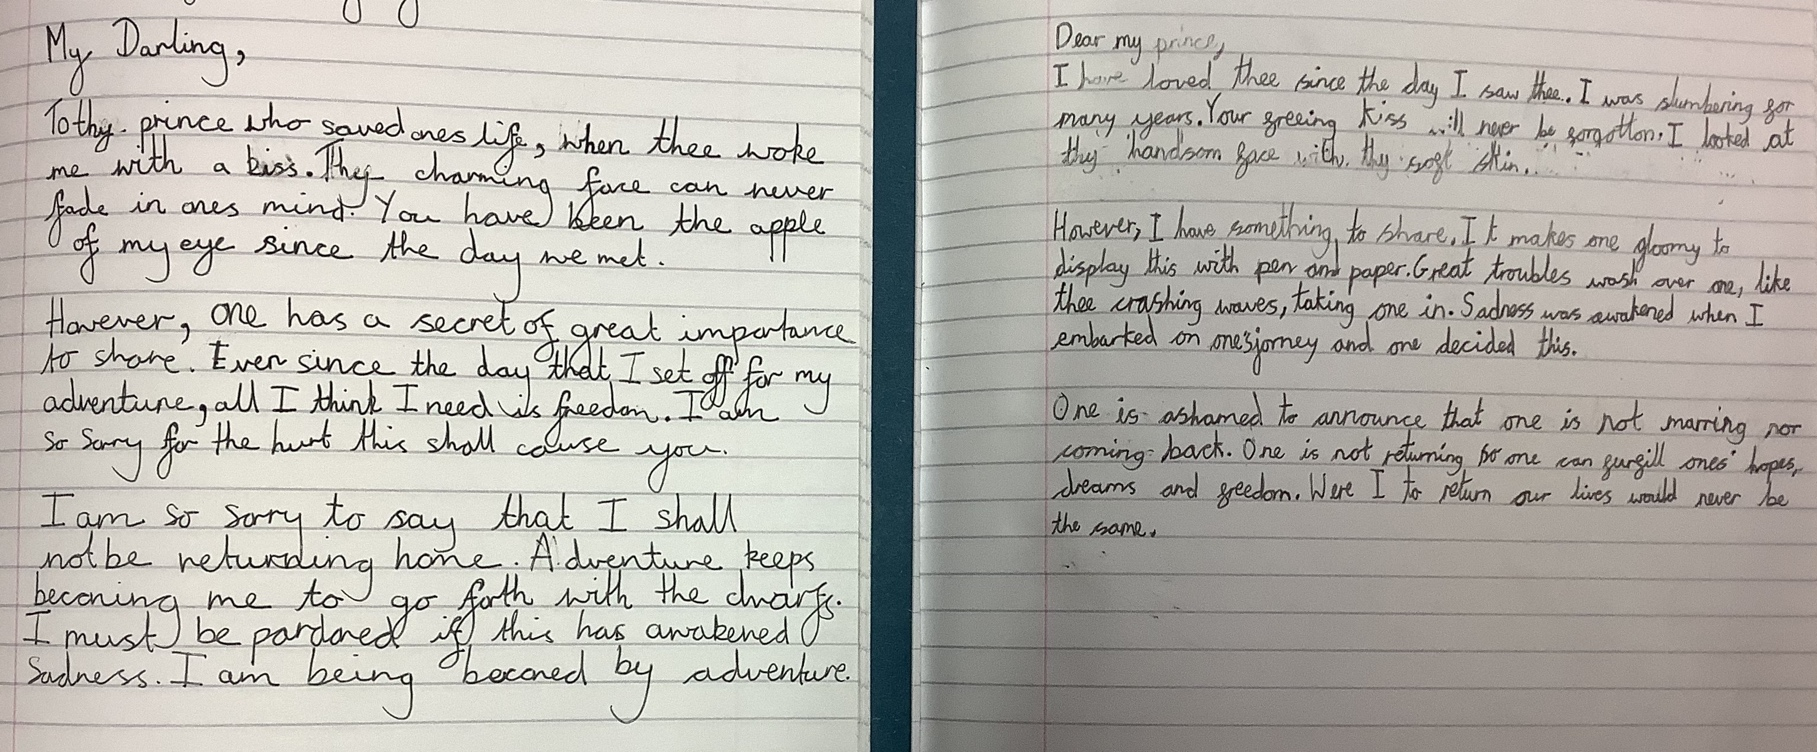 My Darling,
To thy prince who saved ones life, when thee woke
me with a kiss. Thy charming face can never
fade in ones mind. You have been the apple
of my eye since the day we met.
However, one has a secret of great importance
to share. Ever since the day that I set off for my
adventure, all I think I need is freedom. I am
so sorry for the hurt this shall cause you.
I am so sorry to say that I shall
not be returning home. Adventure keeps
becconing me to go forth with the dwarfs.
I must be pardoned if this has awakened
sadness. I am being becconed by adventure.
Dear my prince,
I have loved thee since the day I saw thee. I was slumbering for
many years. Your freeing kiss will never be forgotton. I looked at
thy handsom face with thy soft skin.
However, I have something to share. It makes one gloomy to
display this with pen and paper. Great troubles wash over one, like
thee crashing waves, taking one in. Sadness was awakened when I
embarked on one's jorney and one decided this.
One is ashamed to announce that one is not marring nor
coming back. One is not returning so one can furfill ones' hopes,
dreams and freedom. Were I to return our lives would never be
the same.